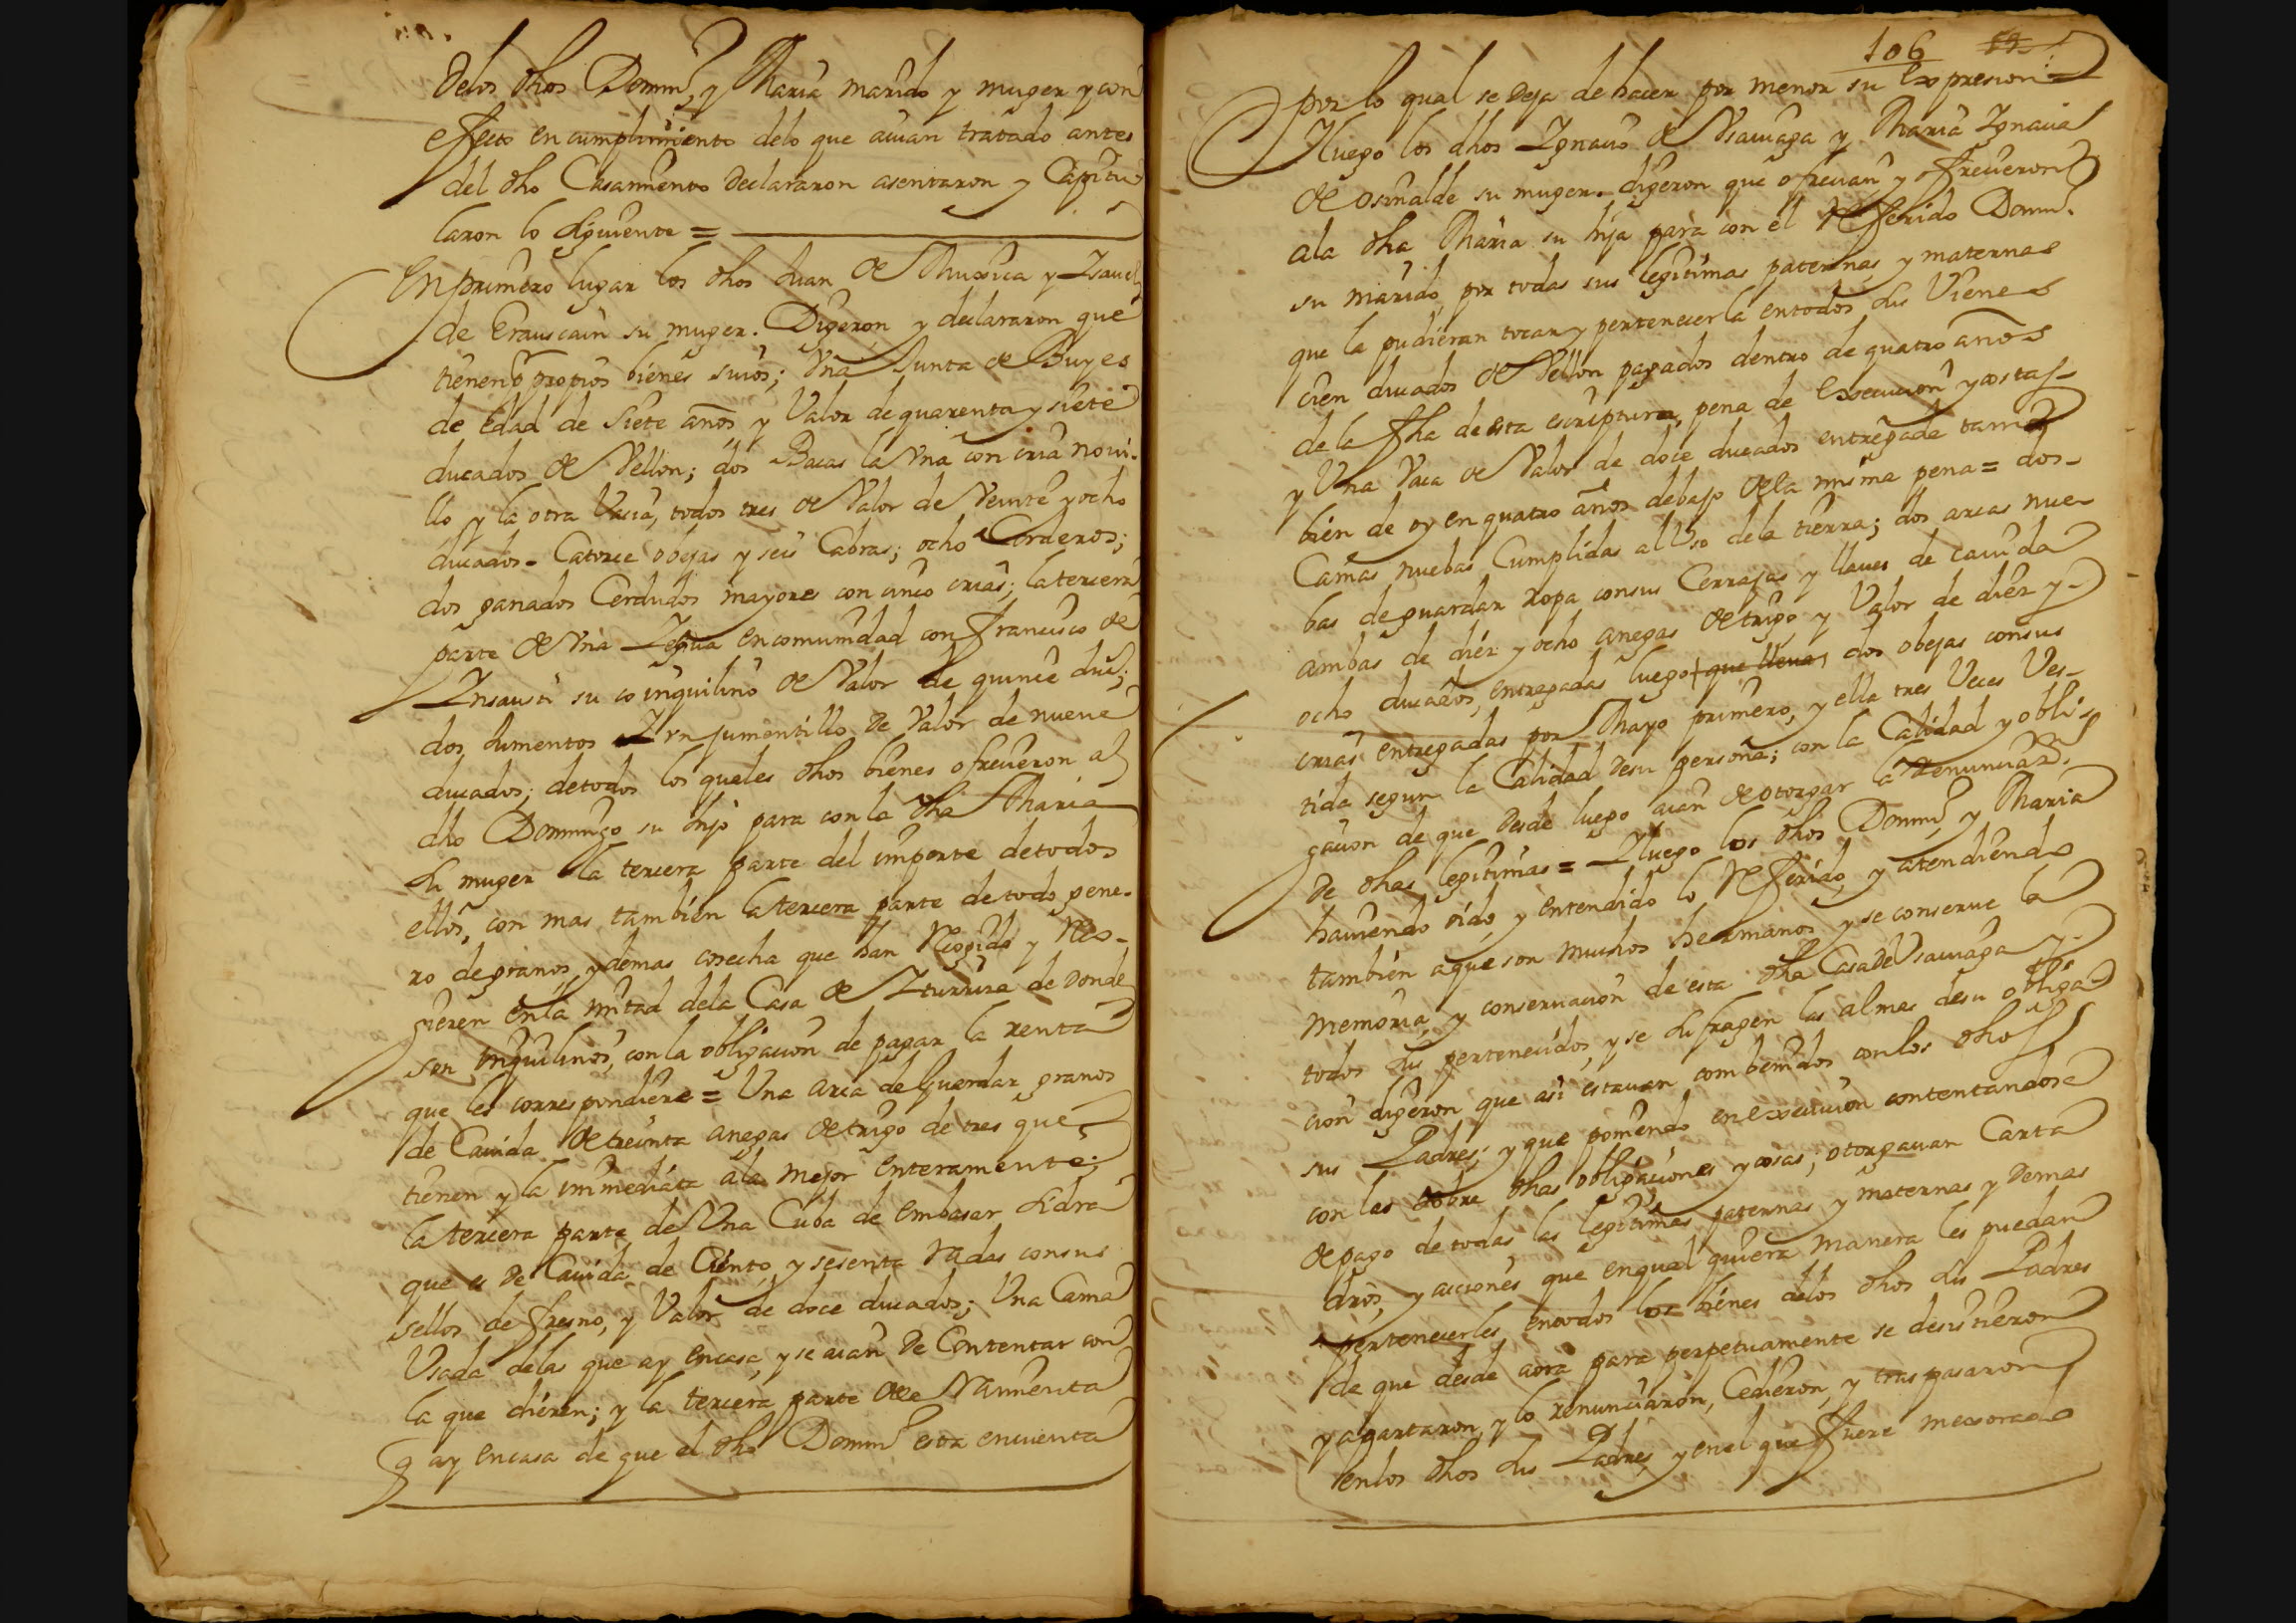 delos dhos Domin,, y Maria marido y muger y con
efecto en cumplimiento delo que auian tratado antes
del dho Casamiento declararon asentaron y Capitu
laron lo siguiente =
En primero lugar los dhos Juan de Muxica y Isauel
de Erauscain su muger. Digeron y declararon que
tienen por propios bienes suios; Vna Junta de Buyes
de edad de siete años y Valor de quarenta y siete
ducados de Vellon; dos Bacas la Vna con cria noui-
llo y la otra Vacia, todos tres de Valor de Veinte y ocho
ducados - Catorce obejas y seis Cabras; ocho Corderos;
dos ganados Cerdudos mayores con cinco crias; la tercera
parte de Vna Iegua en comunidad con Francisco de
Insausti su coinquilino de Valor de quince dus;
dos Jumentos Y vn jumentillo de Valor de nueue
ducados; de todos los quales dhos bienes ofrecieron al
dho Domingo su hijo para con la dha Maria
su muger la tercera parte del importe de todos
ellos, con mas tambien la tercera parte de todo gene-
ro de granos y demas cosecha que han Recogido y Reco-
gieren en la mitad dela Casa de Iturriza de donde
son inquilinos, con la obligacion de pagar la renta
que les correspondiere = Una arca de Guardar granos
de Cauida de treinta anegas de trigo de tres que
tienen y la immediata ala mejor enteramente;
la tercera parte de Vna Cuba de embasar sidra
que es de Cauida de Ciento y sesenta Vadas con sus
sellos de fresno, y Valor de doce ducados; Una Cama
Usada delas que ay en casa, y se aian de Contentar con
la que dieren; y la tercera parte de la Vanienta
q ay en casa de que el dho Domin,, esta en cuenta
106
por lo qual se deja de hacer por menor su expresion =
Y luego los dhos Ignacio de Vsauiaga y Maria Ignacia
de Osinalde su muger. digeron que ofrecian y ofrecieron
ala dha Maria su hija para con el Referido Domin,,
su marido por todas sus legitimas paternas y maternas
que la pudieran tocar y pertenecerla en todos sus Vienes
cien ducados de Vellon pagados dentro de quatro años
de la fha de esta escriptura, pena de execucion y costas
y Una Vaca de Valor de doce ducados entregade tam
bien de oy en quatro años debajo de la misma pena = dos
Camas nuebas Cumplidas al Vso dela tierra; dos arcas nue
bas de guardar ropa con sus Cerrajas y llaues de cauida
ambas de diez y ocho anegas de trigo y Valor de diez y
ocho ducados, entregadas luego que lleua, dos obejas con sus
crias entregadas por Mayo primero, y ella tres Veces Ves-
tida segun la Calidad de su persona; con la Calidad y obli
gacion de que desde luego aian de otorgar la Renunciaz.on
de dhas legitimas = Y luego los dhos Domin,, y Maria
hauiendo oido, y entendido lo Referido, y atendiendo
tambien aque son muchos hermanos y se conserue la
memoria y conseruacion de esta dha Casa de Vsauiaga y
todos sus pertenecidos, y se sufragen las almas de su obliga
cion digeron que asi estauan combenidos con los dhos
sus Padres; y que poniendo en execucion contentandose
con las sobre dhas obligaciones y cosas; otorgauan Carta
de pago de todas las legitimas paternas y maternas y demas
dros, y acciones que en qual quiera manera les puedan
pertenecerles en todos los bienes delos dhos sus Padres
de que desde aora para perpetuamente se desistieron
y apartaron, y lo renunciaron, Cedieron, y traspasaron
en los dhos sus Padres, y en el que fuere mexorado